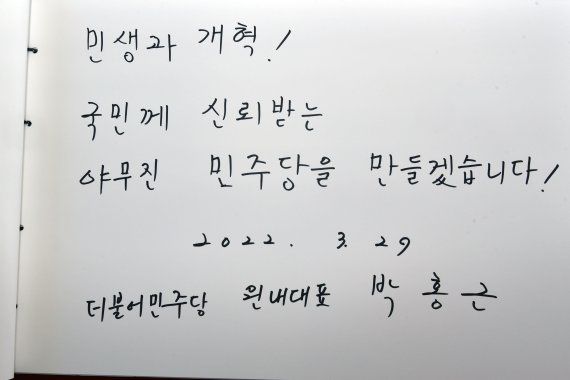 민생과 개혁!
국민께 신뢰받는
야무진 민주당을 만들겠습니다!
2022. 3. 29
더불어민주당 원내대표 박홍근